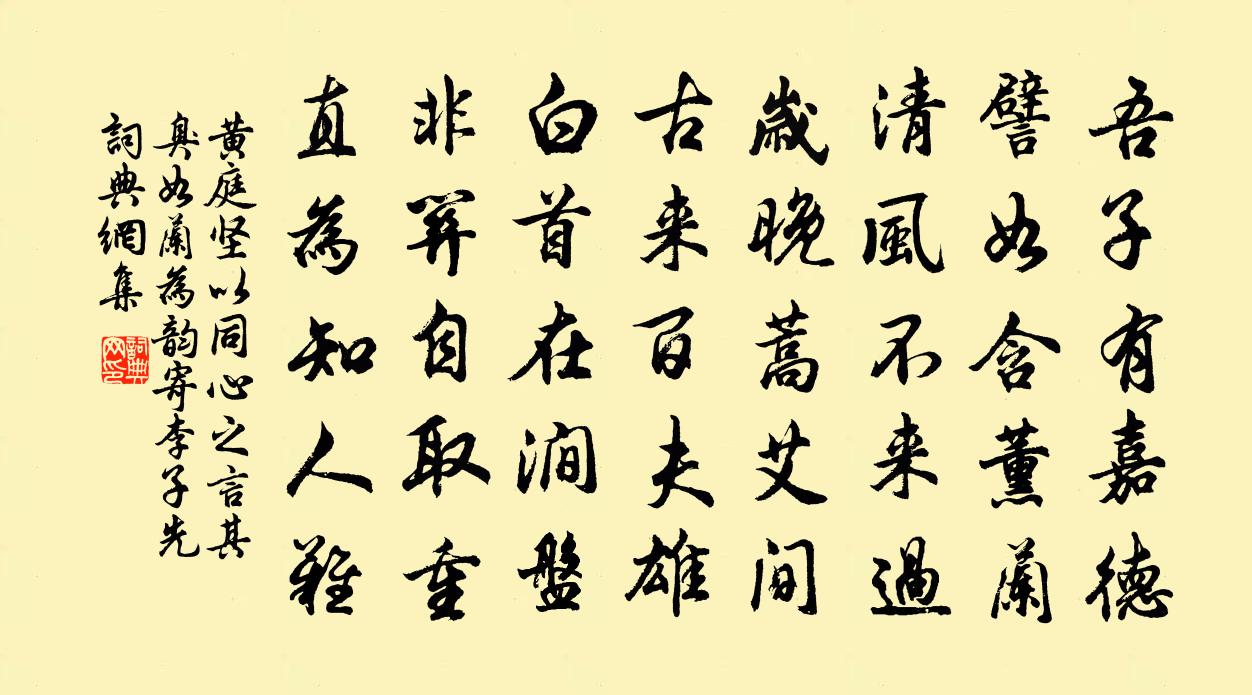 吾子有嘉德
譬如含薰蘭
清風不來過
歲晚蒿艾間
古來百夫雄
白首在澗盤
非關自取重
直為知人難
黄庭坚以同心之言其
臭如蘭為韵寄李子先
詞典網集
詞典
网印